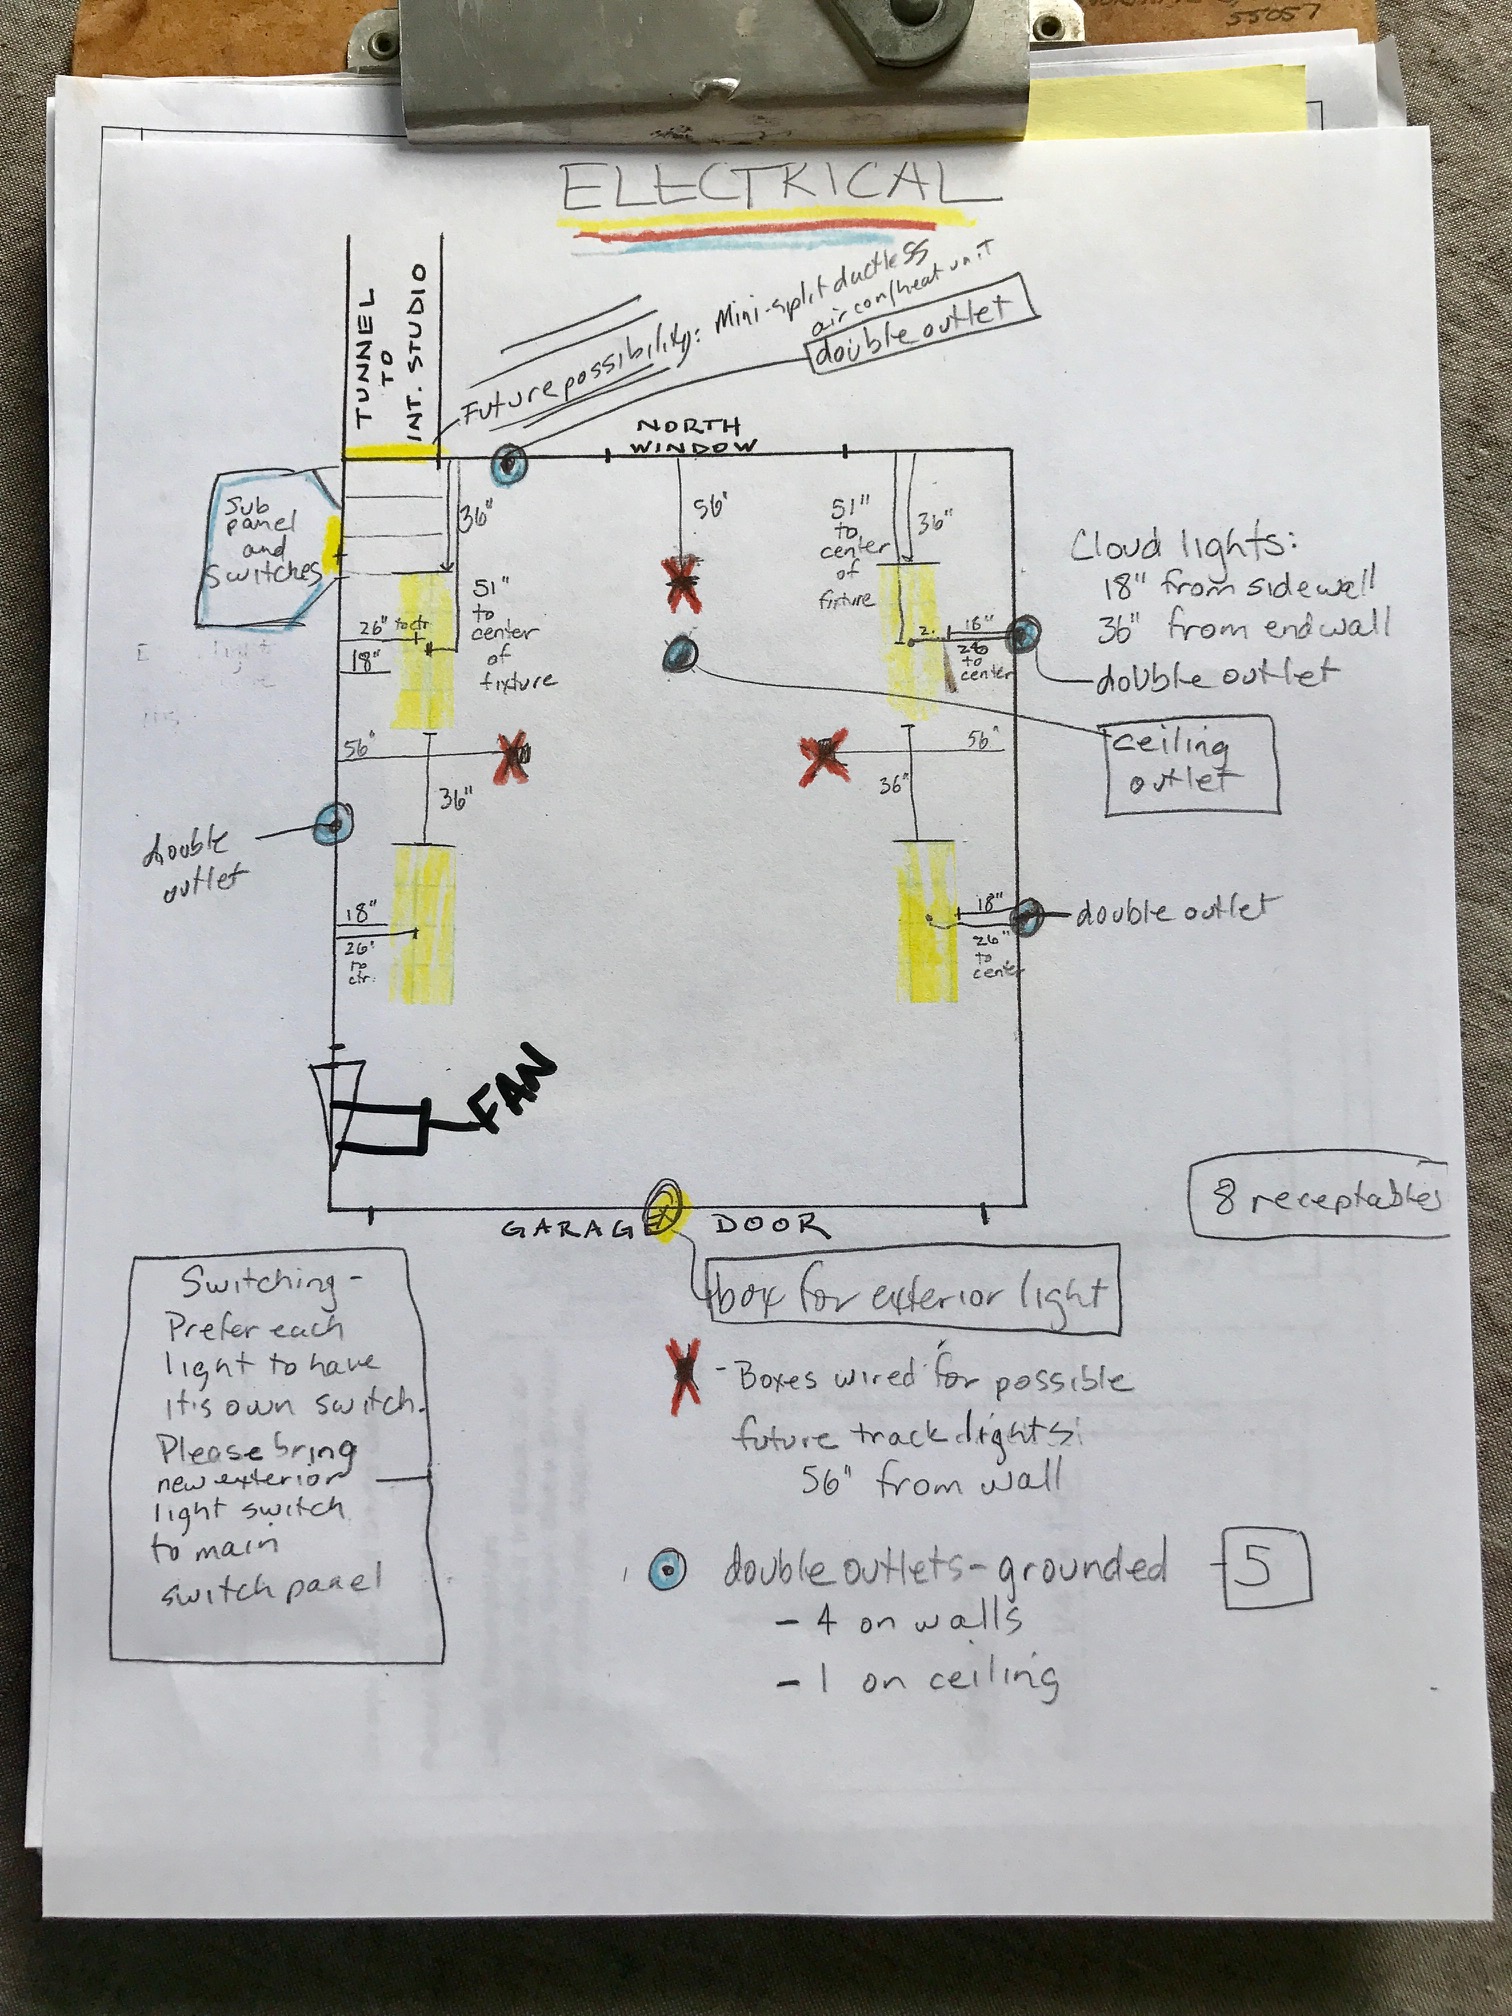 55057
ELECTRICAL
TUNNEL
TO
INT. STUDIO
Future possibility: Mini-split ductless
air con/heat unit
double outlet
NORTH
WINDOW
Sub
panel
and
switches
36"
51"
to
center
of
fixture
26" to ctr
18"
56"
51"
to
center
of
fixture
36"
16"
to
center
Cloud lights:
18" from sidewall
36" from endwall
double outlet
ceiling
outlet
56"
36"
56"
36"
double
outlet
18"
26"
to
ctr.
18"
26"
to
center
double outlet
FAN
8 receptables
GARAGE DOOR
box for exterior light
Switching -
Prefer each
light to have
it's own switch.
Please bring
new exterior
light switch
to main
switch panel
- Boxes wired for possible
future track lights:
56" from wall
double outlets - grounded - 5
- 4 on walls
- 1 on ceiling